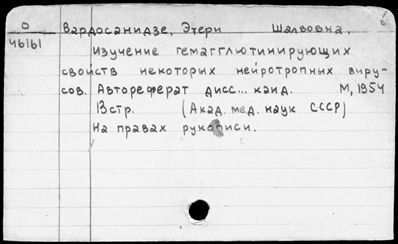 О Вардосанидзе, Этери Шалвовна.
46161 Изучение гемагглютинирующих
свойств некоторых нейротропных виру-
сов. Автореферат дисс... канд. М, 1954
13 стр. (Акад. мед. наук СССР)
На правах рукописи.